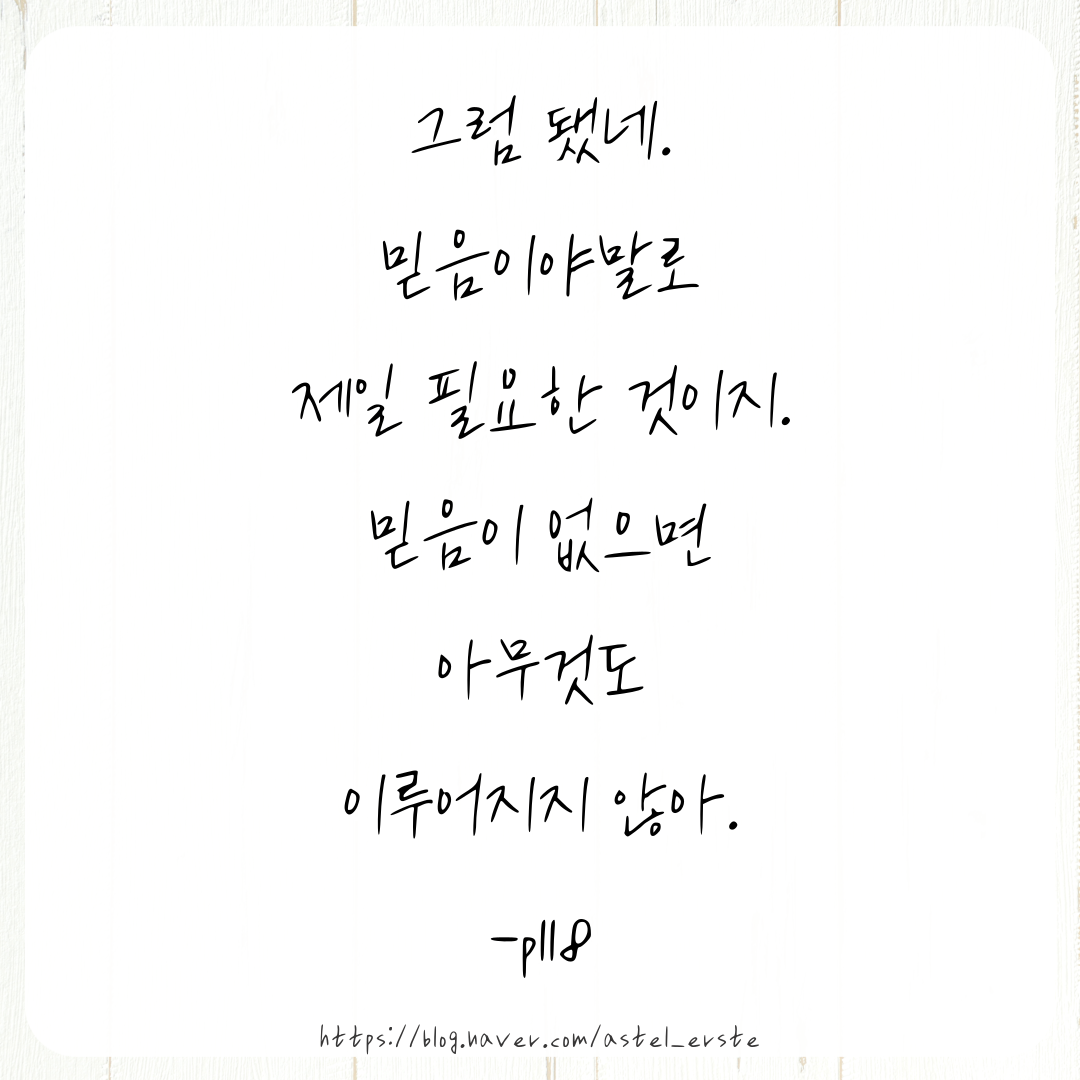 그럼 됐네.
믿음이야말로
제일 필요한 것이지.
믿음이 없으면
아무것도
이루어지지 않아.
-p118
https://blog.naver.com/astel_erste